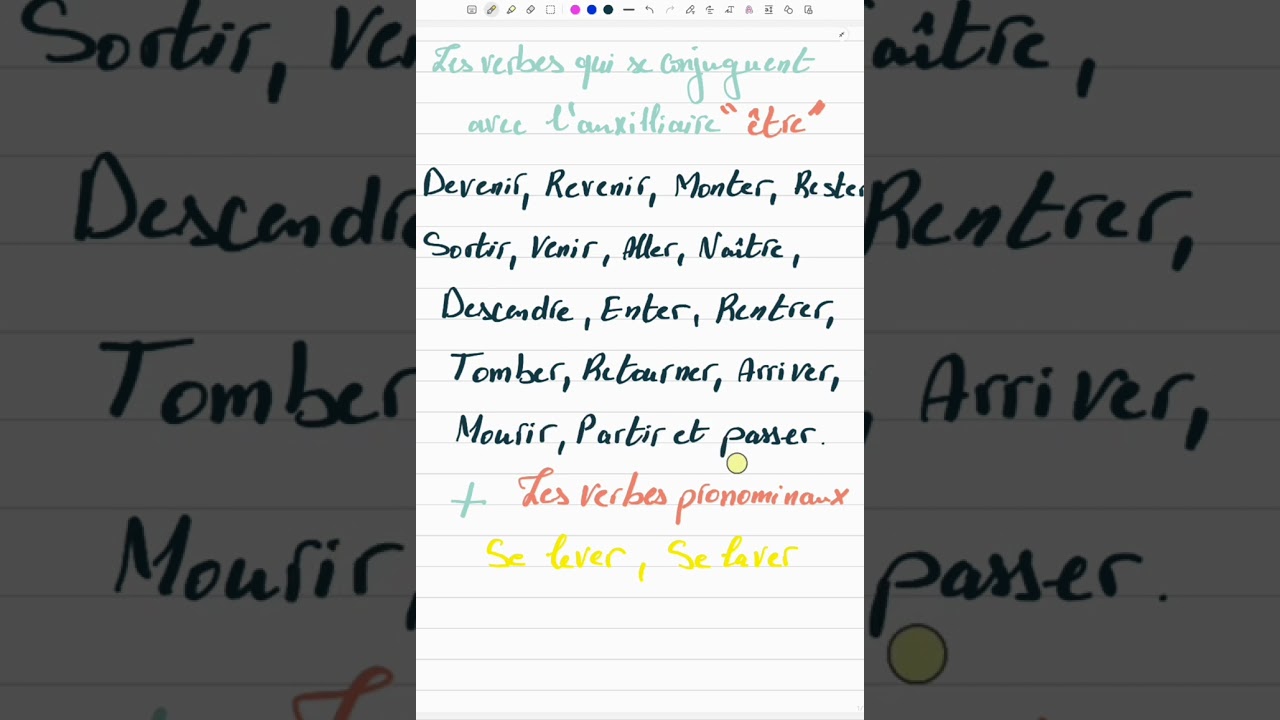 Les verbes qui se conjuguent
avec l'auxilliaire "être"
Devenir, Revenir, Monter, Rester
Sortir, Venir, Aller, Naître,
Descendre, Enter, Rentrer,
Tomber, Retourner, Arriver,
Mourir, Partir et passer.
+ Les verbes pronominaux
Se lever, Se laver